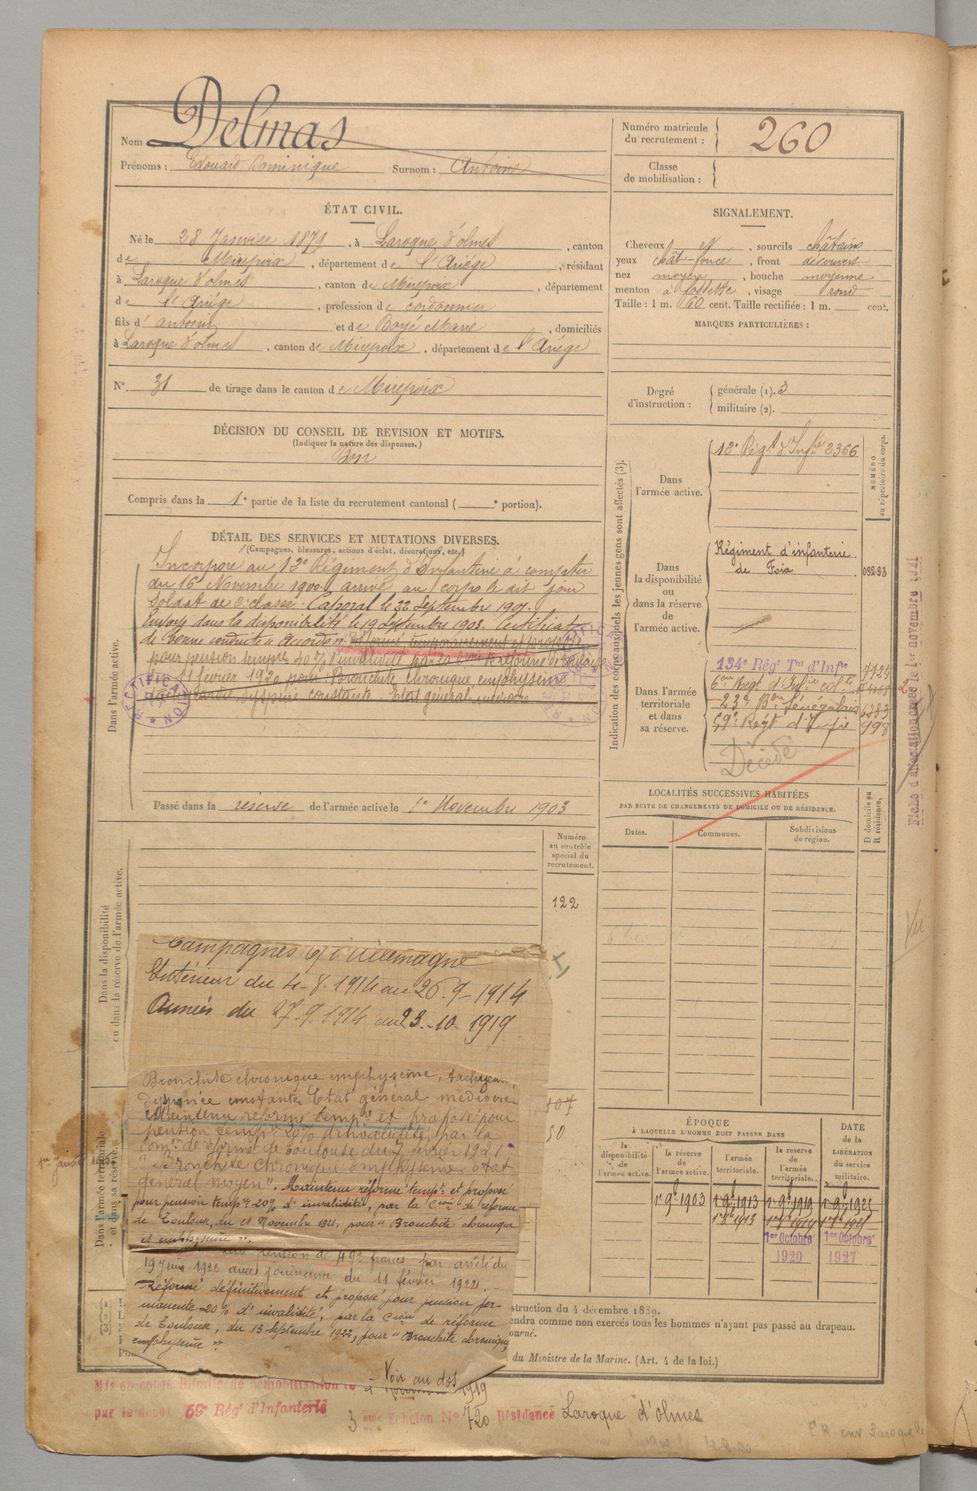 Nom Delmas
Prénoms : Edouard Dominique Surnom : Antoine
Numéro matricule du recrutement : 260
Classe de mobilisation :
ÉTAT CIVIL.
Né le 28 Janvier 1879, à Laroque d'olmes, canton
de Mirepoix, département de l'Ariége, résidant
à Laroque d'olmes, canton de Mirepoix, département
de l'Ariége, profession de cordonnier
fils d'antoine et de Boyé Marie, domiciliés
à Laroque d'olmes, canton de Mirepoix, département de l'Ariége
N° 31 de tirage dans le canton de Mirepoix
SIGNALEMENT.
Cheveux et, sourcils châtains
yeux chât-foncé, front découvert
nez moyen, bouche moyenne
menton à fossette, visage rond
Taille : 1 m. 60 cent. Taille rectifiée : 1 m. cent.
MARQUES PARTICULIÈRES :
Degré d'instruction : générale (1). 3
militaire (2).
DÉCISION DU CONSEIL DE REVISION ET MOTIFS.
(Indiquer la nature des dispenses.)
Bon
Compris dans la 1e partie de la liste du recrutement cantonal ( e portion).
DÉTAIL DES SERVICES ET MUTATIONS DIVERSES.
(Campagnes, blessures, actions d'éclat, décorations, etc.)
Dans l'armée active.
Incorporé au 12e Régiment d'Infanterie à compter
du 16 Novembre 1900 arrivé au corps le dit jour
Soldat de 2e classe. Caporal le 22 Septembre 1901.
Envoyé dans la disponibilité le 19 Septembre 1903. Certificat
de bonne conduite « accordé ». Réformé temporairement et proposé
11 février 1920 pour Bronchite chronique emphysème
dyspnée constante Etat général médiocre
RECTIFICATION
Passé dans la réserve de l'armée active le 1er Novembre 1903
Indication des corps auxquels les jeunes gens sont affectés (3).
NUMÉRO au répertoire du corps.
Dans l'armée active.
12e Régt d'Infie 2366
Dans la disponibilité ou dans la réserve de l'armée active.
Régiment d'infanterie
de Foix 09293
Dans l'armée territoriale et dans sa réserve.
134e Régt Tal d'Infie
23e Bon Sénégalais 6383
59e Régt d'Infie 998
Décédé
Fiche d'affectation créée le 1er Novembre 1921
LOCALITÉS SUCCESSIVES HABITÉES
PAR SUITE DE CHANGEMENTS DE DOMICILE OU DE RÉSIDENCE.
Dates.
Communes.
Subdivisions de région.
D domicile ou R résidence.
Dans la disponibilité ou dans la réserve de l'armée active.
Numéro au contrôle spécial du recrutement.
122
Campagnes c/ l'Allemagne
Intérieur du 4-8-1914 au 26-9-1914
Armées du 27-9-1914 au 23-10-1919
Dans l'armée territoriale et dans sa réserve.
Bronchite chronique emphysème,
dyspnée constante Etat général médiocre
Maintenu réformé tempre et proposé pour
pension tempre 20% d'invalidité, par la
Comon de réforme de Toulouse du 7 février 1921
"Bronchite chronique emphysème, état
général moyen". Maintenu réformé tempre et proposé
pour pension tempre 20% d'invalidité, par la Cion de réforme
de Toulouse, du 21 Novembre 1921, pour "Bronchite chronique
et emphysème".
pension de 492 francs par arrêté du
19 Juin 1922 avec jouissance du 11 février 1922.
Réformé définitivement et proposé pour pension per-
manente 20% d'invalidité, par la Cion de réforme
de Toulouse, du 13 Septembre 1923, pour "Bronchite chronique,
emphysème".
Voir au dos
ÉPOQUE
À LAQUELLE L'HOMME DOIT PASSER DANS
la disponibilité de l'armée active.
la réserve de l'armée active.
l'armée territoriale.
la réserve de l'armée territoriale.
DATE de la LIBÉRATION du service militaire.
1er 9bre 1903
1er 9bre 1913
1er 9bre 1919
1er Octobre 1920
1er Octobre 1927
struction du 4 décembre 1889.
endra comme non exercés tous les hommes n'ayant pas passé au drapeau.
ourné.
du Ministre de la Marine. (Art. 4 de la loi.)
Mis en congé illimité de démobilisation le 1919
par le dépôt 59e Rég d'Infanterie 3 ème Echelon No 720 Résidence Laroque d'olmes